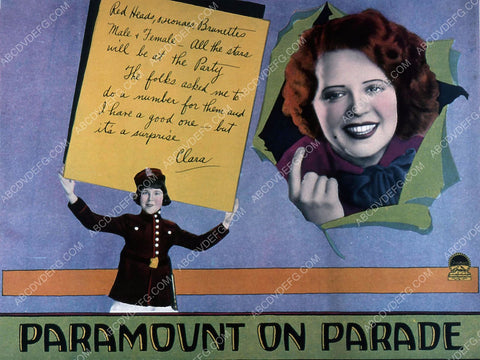 Red Heads, Blondes, Brunettes
Male & Female. All the stars
will be at the Party
The folks asked me to
do a number for them and
I have a good one but
it's a surprise
Clara
PARAMOUNT ON PARADE
ABCDVDEFG.COM